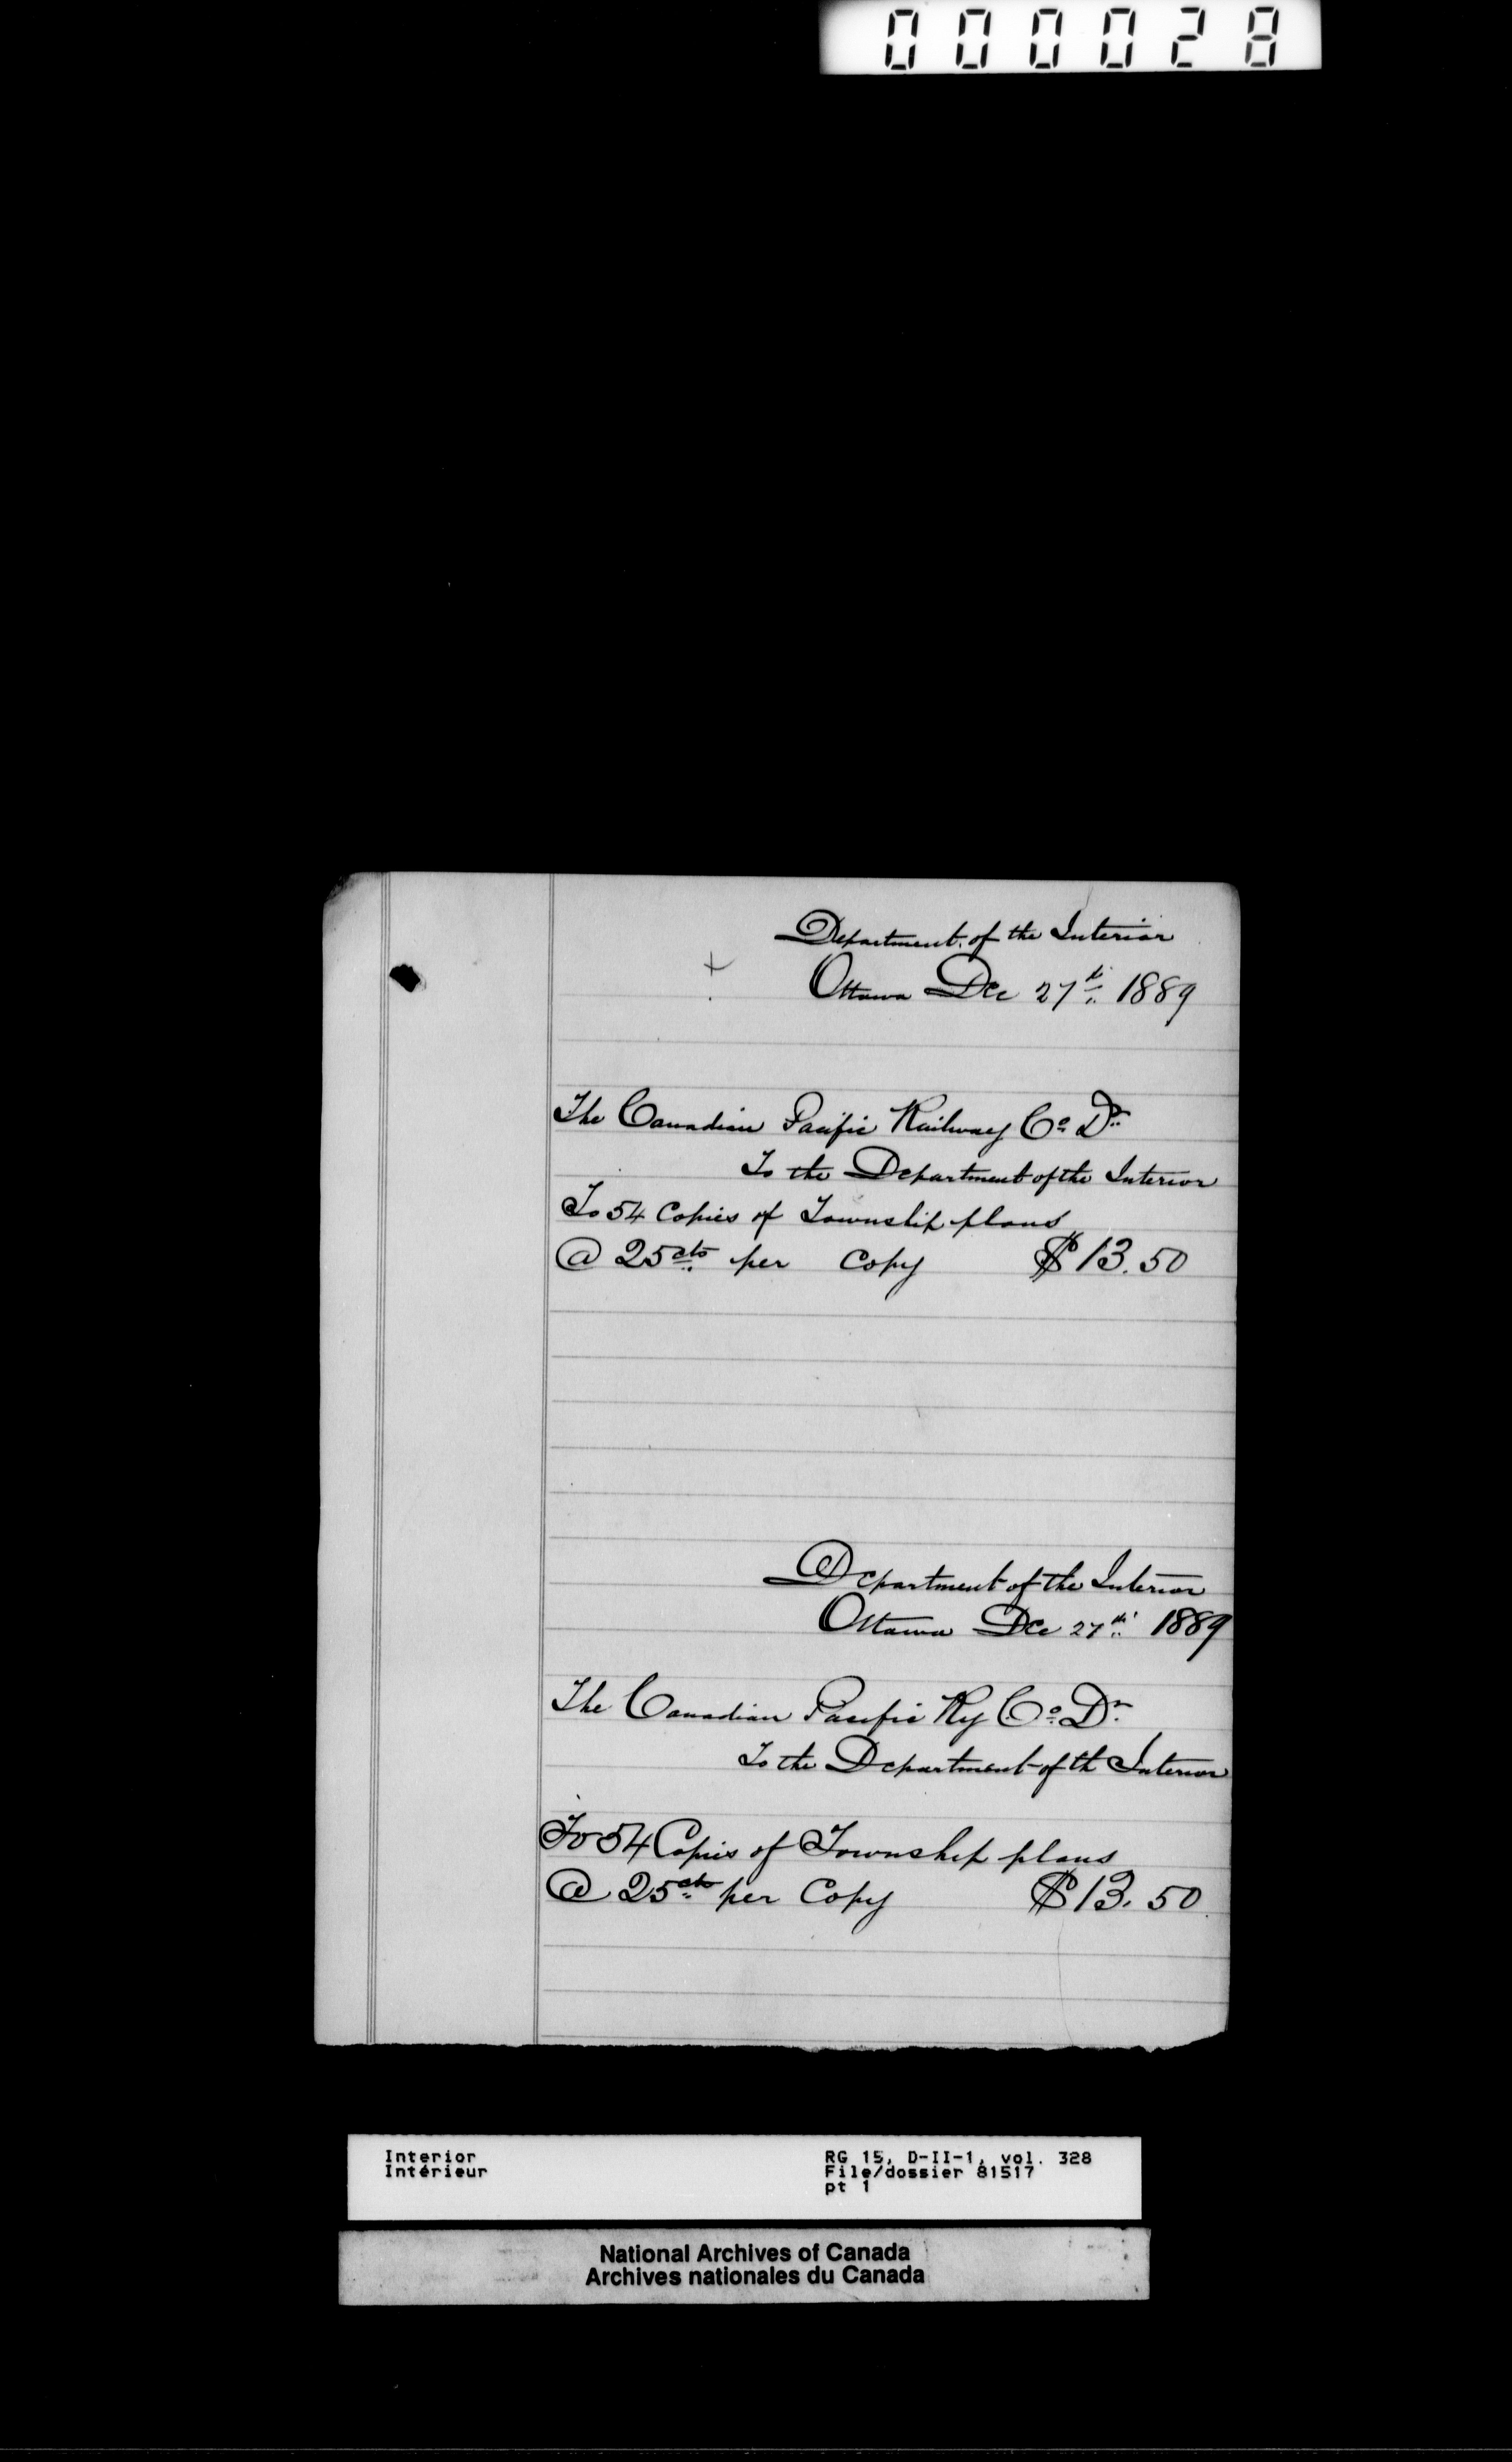 000028
Department of the Interior
Ottawa Dec 27th 1889
The Canadian Pacific Railway Co Dr
To the Department of the Interior
To 54 Copies of Township plans
@ 25cts per Copy $13.50
Department of the Interior
Ottawa Dec 27th 1889
The Canadian Pacific Ry Co Dr
To the Department of th Interior
To 54 Copies of Township plans
@ 25cts per Copy $13.50
Interior
Intérieur
RG 15, D-II-1, vol. 328
File/dossier 81517
pt 1
National Archives of Canada
Archives nationales du Canada